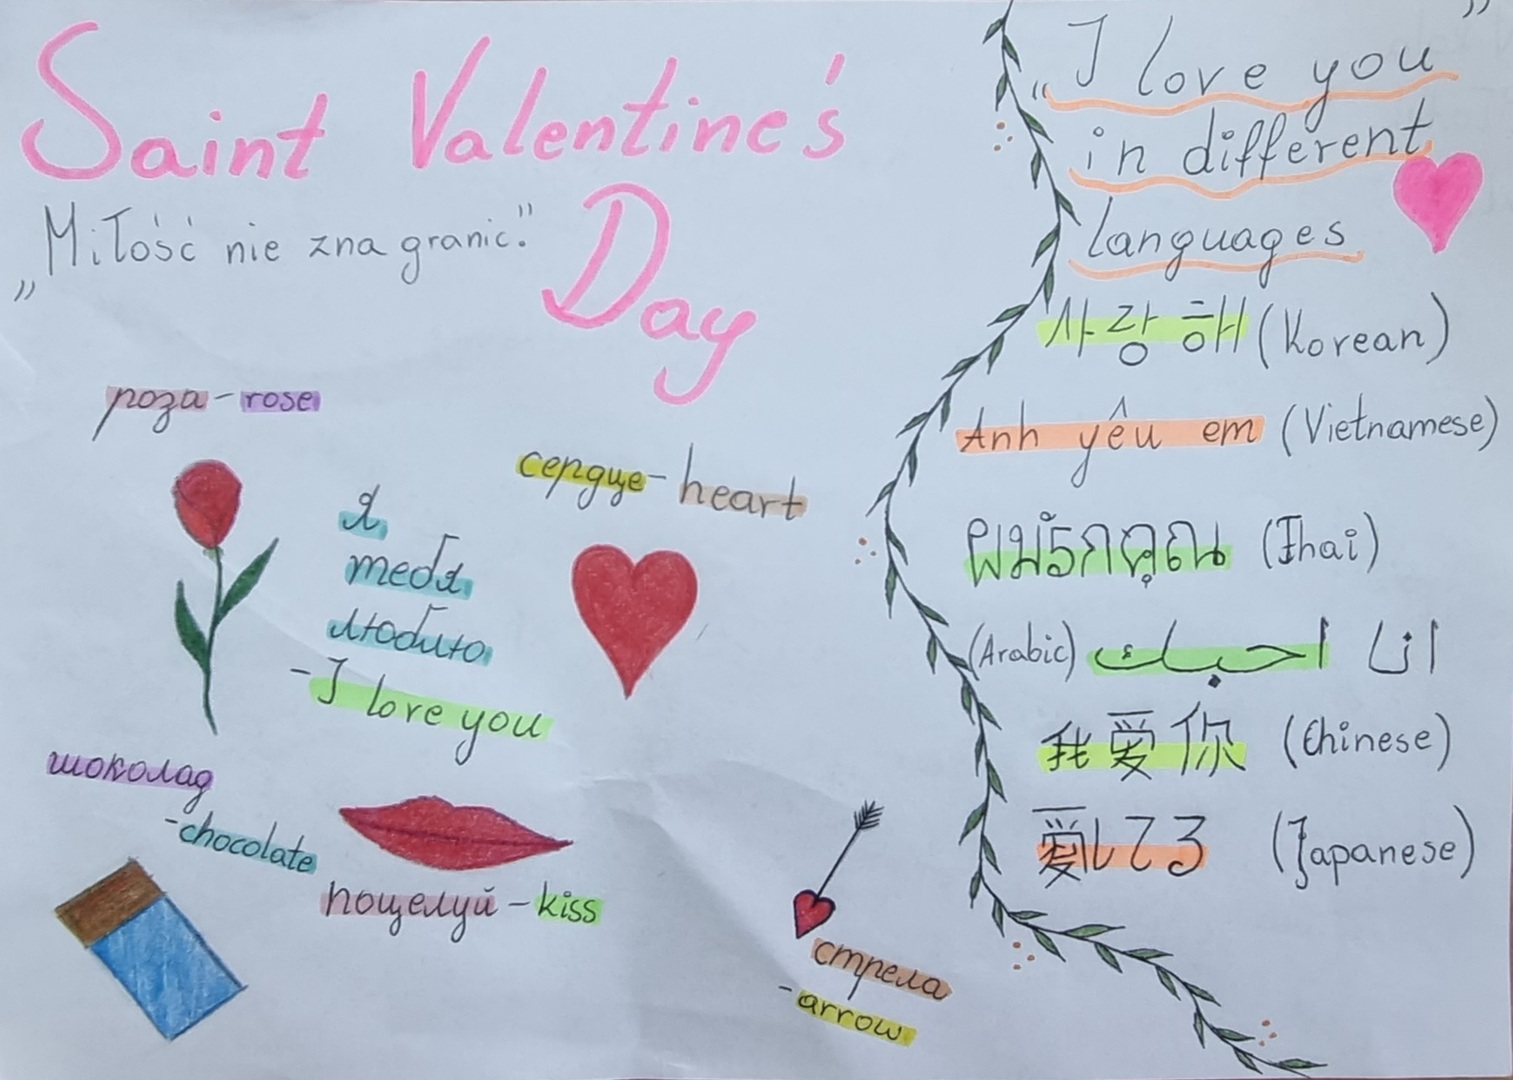 Saint Valentine's
Day
„Miłość nie zna granic."
роза - rose
я
тебя
люблю
- I love you
сердце - heart
шоколад
- chocolate
поцелуй - kiss
стрела
- arrow
„I love you"
in different
languages
사랑해 (Korean)
Anh yêu em (Vietnamese)
ผมรักคุณ (Thai)
(Arabic) انا احبك
我爱你 (Chinese)
愛してる (Japanese)